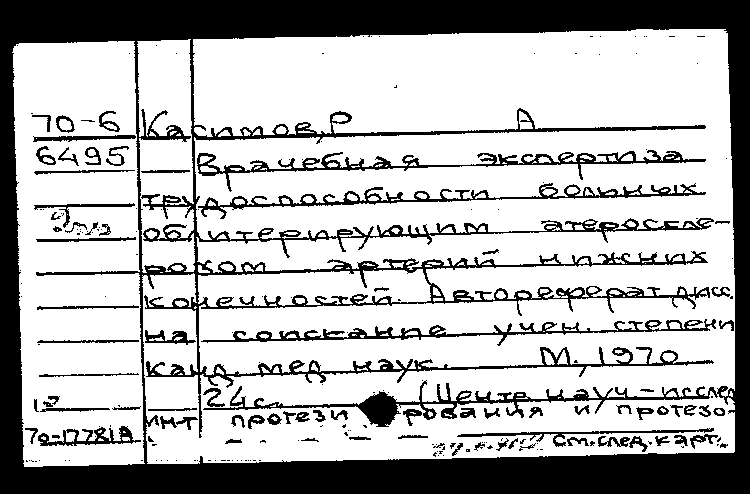 70-6 Касимов, Р А
6495 Врачебная экспертиза
трудоспособности больных
облитерирующим атероскле-
розом артерий нижних
конечностей. Автореферат дисс.
на соискание учен. степени
канд. мед. наук. М., 1970
24с. (Центр. науч.-исслед
ин-т протезирования и протезо-
70-17781А см.след.карт.